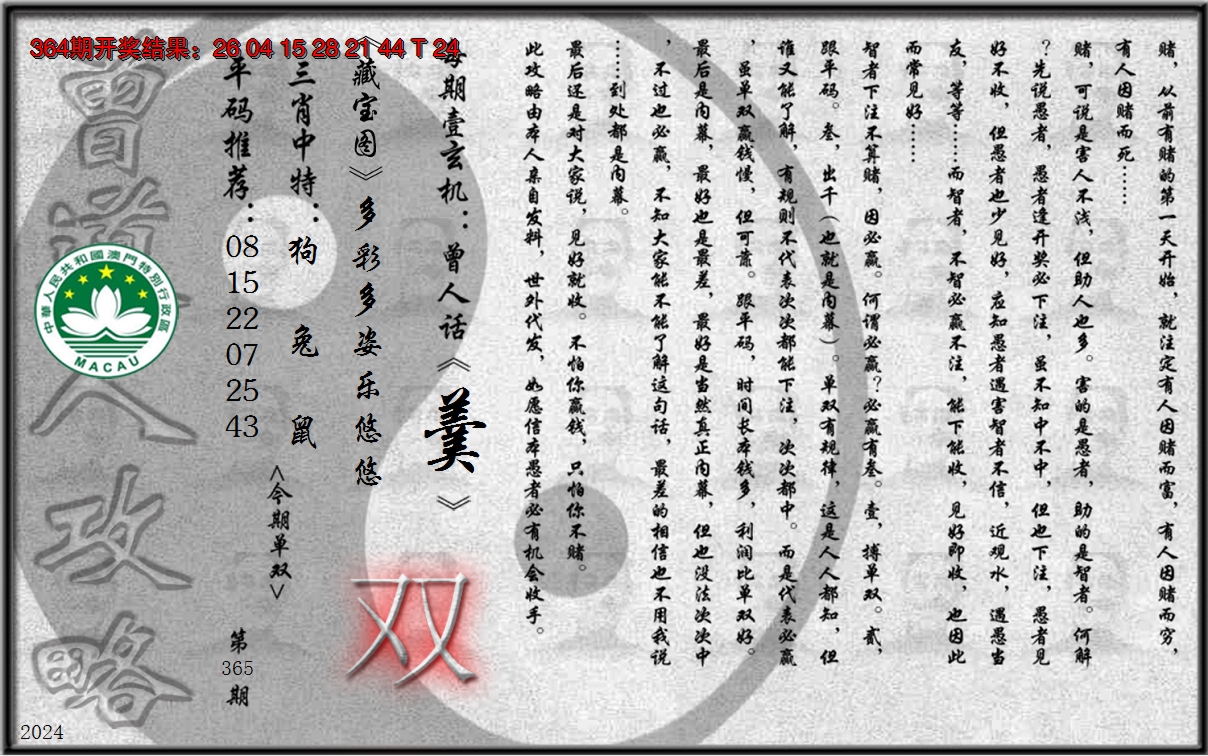 364期开奖结果：26 04 15 28 21 44 T 24
赌，从前有赌的第一天开始，就注定有人因赌而富，有人因赌而穷，
有人因赌而死……
赌，可说是害人不浅，但助人也多。害的是愚者，助的是智者。何解
？先说愚者，愚者逢开奖必下注，虽不知中不中，但也下注，愚者见
好不收，但愚者也少见好，应知愚者遇害智者不信，近观水，遇愚当
友，等等……而智者，不智必赢不注，能下能收，见好即收，也因此
而常见好……
智者下注不算赌，因必赢。何谓必赢？必赢有叁。壹，搏单双。贰，
跟平码。叁，出千（也就是内幕）。单双有规律，这是人人都知，但
谁又能了解，有规则不代表次次都能下注，次次都中。而是代表必赢
，虽单双赢钱慢，但可靠。跟平码，时间长本钱多，利润比单双好。
最后是内幕，最好也是最差，最好是当然真正内幕，但也没法次次中
，不过也必赢，不知大家能不能了解这句话，最差的相信也不用我说
……到处都是内幕。
最后还是对大家说，见好就收。不怕你赢钱，只怕你不赌。
此攻略由本人亲自发料，世外代发，如愿信本愚者必有机会收手。
每期壹玄机：曾人话《羹》
《藏宝图》多彩多姿乐悠悠
双
三肖中特：狗 兔 鼠
<今期单双>
平码推荐：08 15 22 07 25 43
第365期
曾道人攻略
中華人民共和國澳門特別行政區
MACAU
2024